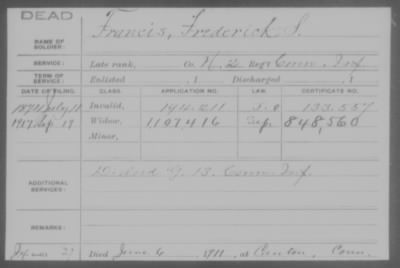 DEAD
NAME OF SOLDIER: Francis, Frederick S.
SERVICE: Late rank, Co. H, 2 Reg't Conn. Inf.
TERM OF SERVICE: Enlisted , 1 Discharged , 1
DATE OF FILING. CLASS. APPLICATION NO. LAW. CERTIFICATE NO.
July 11 Invalid, 194.211 133.557
1917 Sep 19 Widow, 1107,416 848,560
Minor,
ADDITIONAL SERVICES: G. 13. Conn. Inf.
REMARKS:
Died June 6, 1911, at Conn.